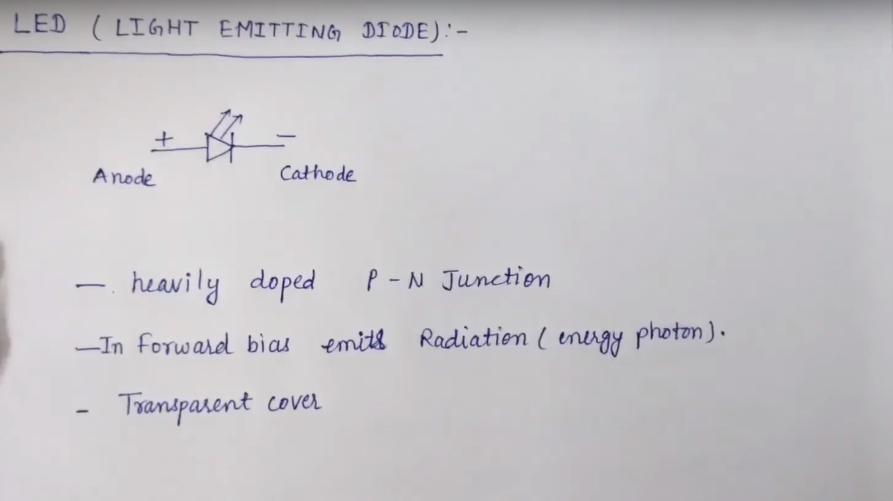 LED (LIGHT EMITTING DIODE):-
+ -
Anode Cathode
- heavily doped P-N Junction
- In forward bias emits Radiation (energy photon).
- Transparent cover